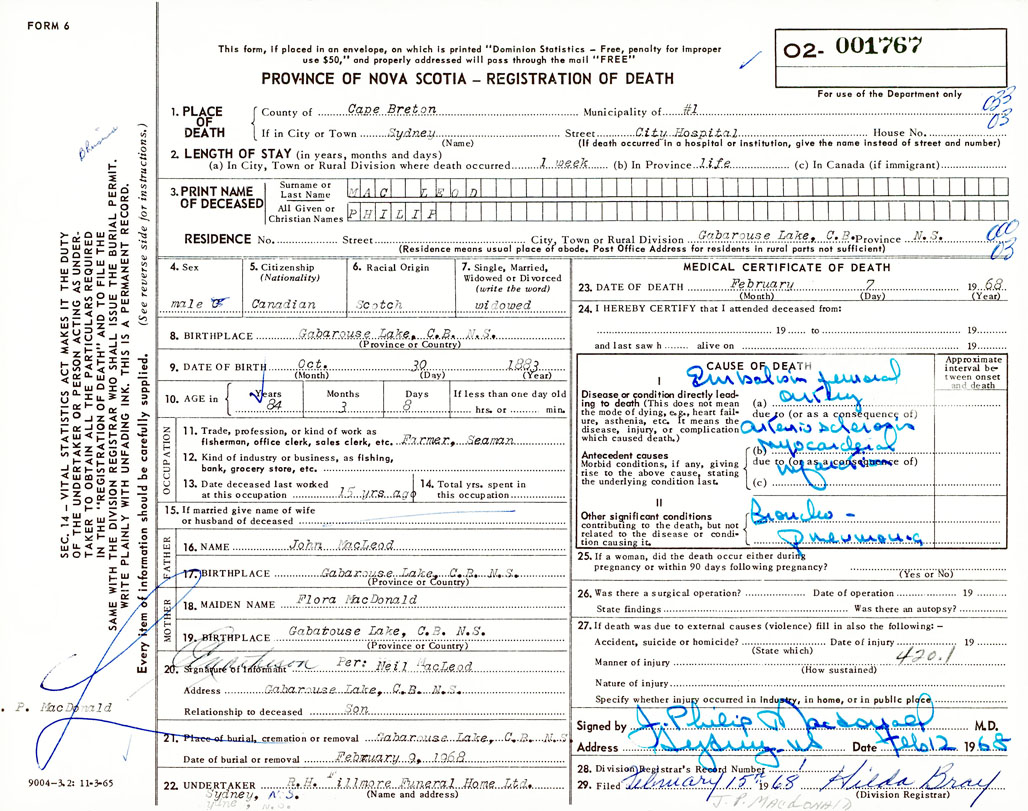 FORM 6
This form, if placed in an envelope, on which is printed "Dominion Statistics – Free, penalty for improper
use $50," and properly addressed will pass through the mail "FREE"
PROVINCE OF NOVA SCOTIA – REGISTRATION OF DEATH
02- 001767
For use of the Department only
033
03
1. PLACE OF DEATH
County of Cape Breton Municipality of #1
If in City or Town Sydney Street City Hospital House No.
(Name) (If death occurred in a hospital or institution, give the name instead of street and number)
2. LENGTH OF STAY (in years, months and days)
(a) In City, Town or Rural Division where death occurred 1 week (b) In Province life (c) In Canada (if immigrant)
3. PRINT NAME OF DECEASED
Surname or Last Name MAC LEOD
All Given or Christian Names PHILIP
RESIDENCE No. Street City, Town or Rural Division Gabarouse Lake, C.B. Province N.S.
(Residence means usual place of abode. Post Office Address for residents in rural parts not sufficient)
000
03
4. Sex
male
5. Citizenship
(Nationality)
Canadian
6. Racial Origin
Scotch
7. Single, Married,
Widowed or Divorced
(write the word)
widowed
8. BIRTHPLACE Gabarouse Lake, C.B. N.S.
(Province or Country)
9. DATE OF BIRTH Oct. 30 1883
(Month) (Day) (Year)
10. AGE in Years Months Days If less than one day old
84 3 8 hrs. or min.
OCCUPATION
11. Trade, profession, or kind of work as
fisherman, office clerk, sales clerk, etc. Farmer, Seaman
12. Kind of industry or business, as fishing,
bank, grocery store, etc.
13. Date deceased last worked
at this occupation 15 yrs ago
14. Total yrs. spent in
this occupation
15. If married give name of wife
or husband of deceased
FATHER
16. NAME John MacLeod
17. BIRTHPLACE Gabarouse Lake, C.B. N.S.
(Province or Country)
MOTHER
18. MAIDEN NAME Flora MacDonald
19. BIRTHPLACE Gabatouse Lake, C.B. N.S.
(Province or Country)
20. Signature of Informant Per: Neil MacLeod
Address Gabarouse Lake, C.B. N.S.
Relationship to deceased Son
21. Place of burial, cremation or removal Gabarouse Lake, C.B. N.S
Date of burial or removal February 9, 1968
22. UNDERTAKER R.H. Fillmore Funeral Home Ltd.
Sydney, N.S. (Name and address)
MEDICAL CERTIFICATE OF DEATH
23. DATE OF DEATH February 7 19 68
(Month) (Day) (Year)
24. I HEREBY CERTIFY that I attended deceased from:
19 to 19
and last saw h alive on 19
CAUSE OF DEATH
Approximate
interval be-
tween onset
and death
I
Disease or condition directly lead-
ing to death (This does not mean
the mode of dying, e.g., heart fail-
ure, asthenia, etc. It means the
disease, injury, or complication
which caused death.)
Embolism femoral
(a) artery
due to (or as a consequence of)
arterio sclerosis
Antecedent causes
Morbid conditions, if any, giving
rise to the above cause, stating
the underlying condition last.
Myocardial
(b)
due to (or as a consequence of)
infarction
(c)
II
Other significant conditions
contributing to the death, but not
related to the disease or condi-
tion causing it.
Broncho -
pneumonia
25. If a woman, did the death occur either during
pregnancy or within 90 days following pregnancy?
(Yes or No)
26. Was there a surgical operation? Date of operation 19
State findings Was there an autopsy?
27. If death was due to external causes (violence) fill in also the following: –
Accident, suicide or homicide? Date of injury 19
(State which)
420.1
Manner of injury
(How sustained)
Nature of injury
Specify whether injury occurred in Industry, in home, or in public place
Signed by J. Philip Macdonald M.D.
Address Sydney ns Date Feb 12 1968
28. Division Registrar's Record Number
29. Filed February 15th 1968 Hilda Bray
(Division Registrar)
J. P. MACDONALD
SEC. 14 – VITAL STATISTICS ACT MAKES IT THE DUTY
OF THE UNDERTAKER OR PERSON ACTING AS UNDER-
TAKER TO OBTAIN ALL THE PARTICULARS REQUIRED
IN THE "REGISTRATION OF DEATH" AND TO FILE THE
SAME WITH THE DIVISION REGISTRAR WHO SHALL ISSUE THE BURIAL PERMIT.
WRITE PLAINLY WITH UNFADING INK. THIS IS A PERMANENT RECORD.
Every item of information should be carefully supplied. (See reverse side for instructions.)
. P. MacDonald
9004-3.2: 11-3-65